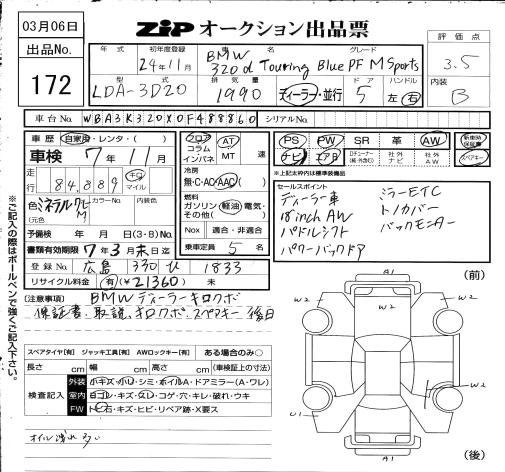 03月06日
ZIP オークション出品票
出品No.
172
年式
初年度登録
24年11月
車名
グレード
BMW
320d Touring Blue PF M Sports
評価点
3.5
型式
LDA-3D20
排気量
1990
ディーラー・並行
ドア
5
ハンドル
左・右
内装
B
車台No.
WBA3K320X0F488860
シリアルNo.
車歴 自家用・レンタ・( )
車検 7年11月
走行
84,889
km
マイル
色 ミネラルグレーM
カラーNo.
内装色
(元色
予備検 年 月 日(3・B)No.
書類有効期限 7年3月末日迄
登録No. 広島 330 ひ 1833
リサイクル料金 有(¥21360) 未
フロア
コラム
インパネ
AT
MT
速
冷房
無・C・AC・AAC( )
燃料
ガソリン・軽油・電気・
その他( )
Nox 適合・非適合
乗車定員 5 名
PS
PW
SR
革
AW
ナビ
エアB
社外
ナビ
社外
AW
新車時
保証書
スペアキー
*上記太枠内は標準装備品
セールスポイント
ディーラー車
18inch AW
パドルシフト
パワーバックドア
ミラーETC
トノカバー
バックモニター
(注意事項) BMWディーラーキロクボ
保証書、取説、キロクボ、スペアキー後日
※ご記入の際はボールペンで強くご記入下さい。
スペアタイヤ【有】 ジャッキ工具【有】 AWロックキー【有】 ある場合のみ○
長さ cm 幅 cm 高さ cm (車検証上の寸法)
検査記入
外装 小キズ・小凹・シミ・ホイルA・ドアミラー(A・ワレ)
室内 ヨゴレ・キズ・スレ・コゲ・穴・キレ・破れ・ウキ
FW トビ石・キズ・ヒビ・リペア跡・X要ス
オイル洩れ多い
(前)
A1
W2
W2
W2
W2
U1
A1
(後)